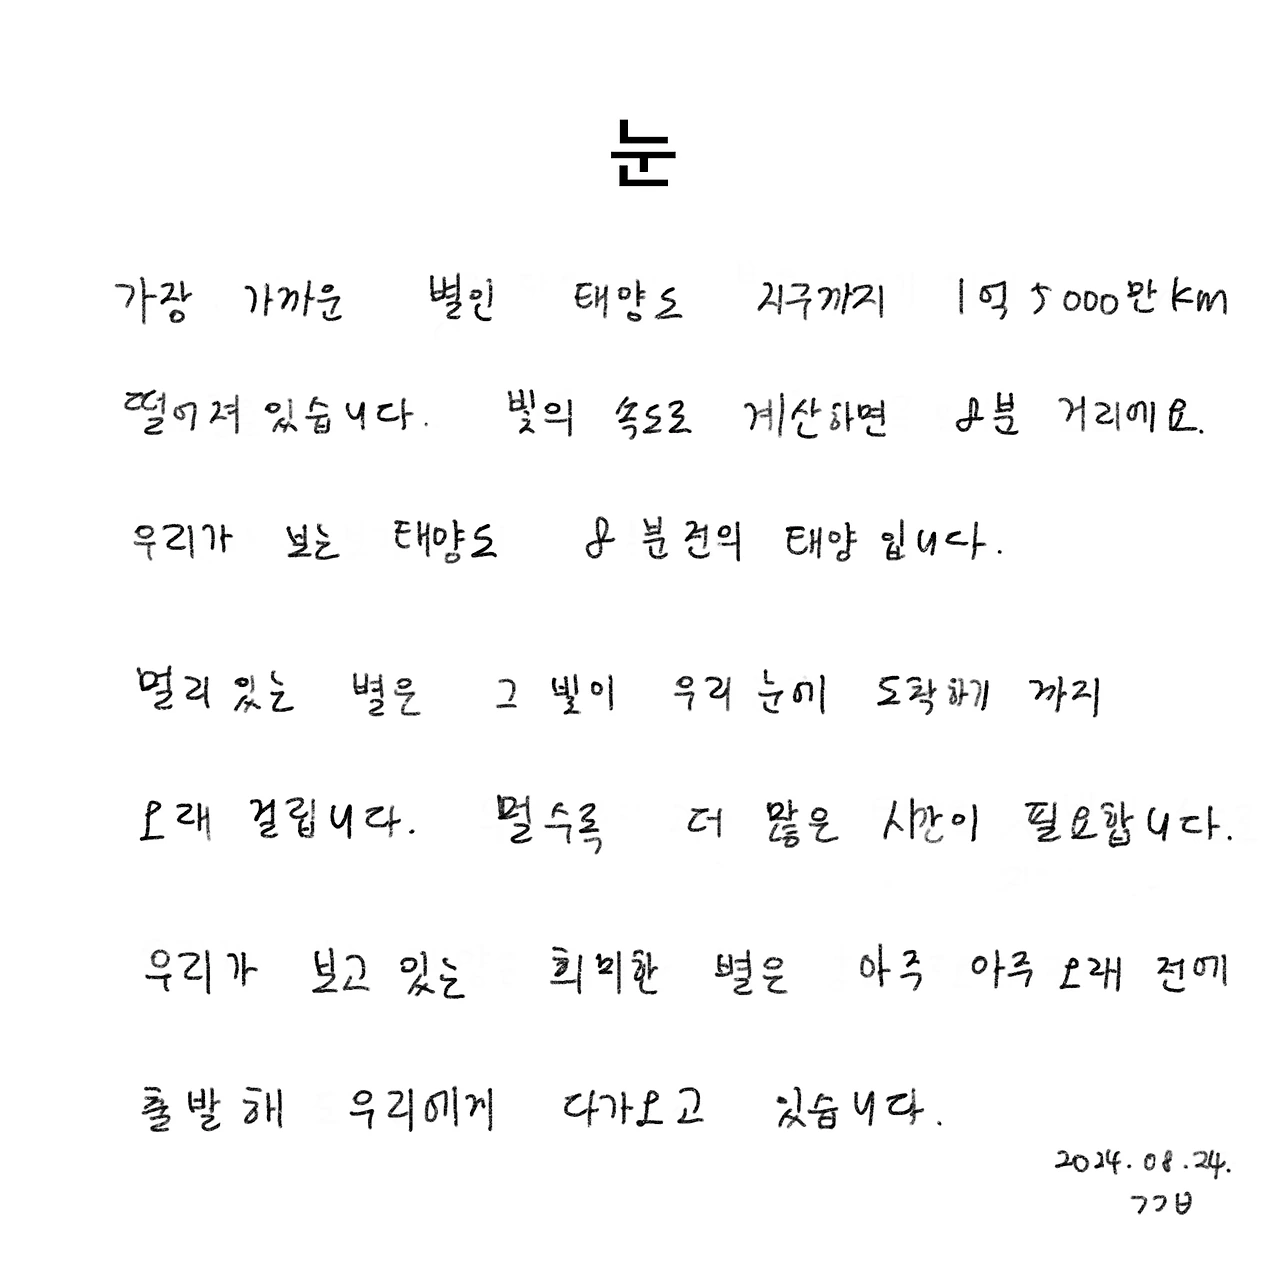 눈
가장 가까운 별인 태양도 지구까지 1억 5000만 km
떨어져 있습니다. 빛의 속도로 계산하면 8분 거리에요.
우리가 보는 태양도 8분 전의 태양입니다.
멀리 있는 별은 그 빛이 우리 눈에 도착하기 까지
오래 걸립니다. 멀수록 더 많은 시간이 필요합니다.
우리가 보고 있는 희미한 별은 아주 아주 오래 전에
출발해 우리에게 다가오고 있습니다.
2024.08.24.
ㄱㄱㅂ